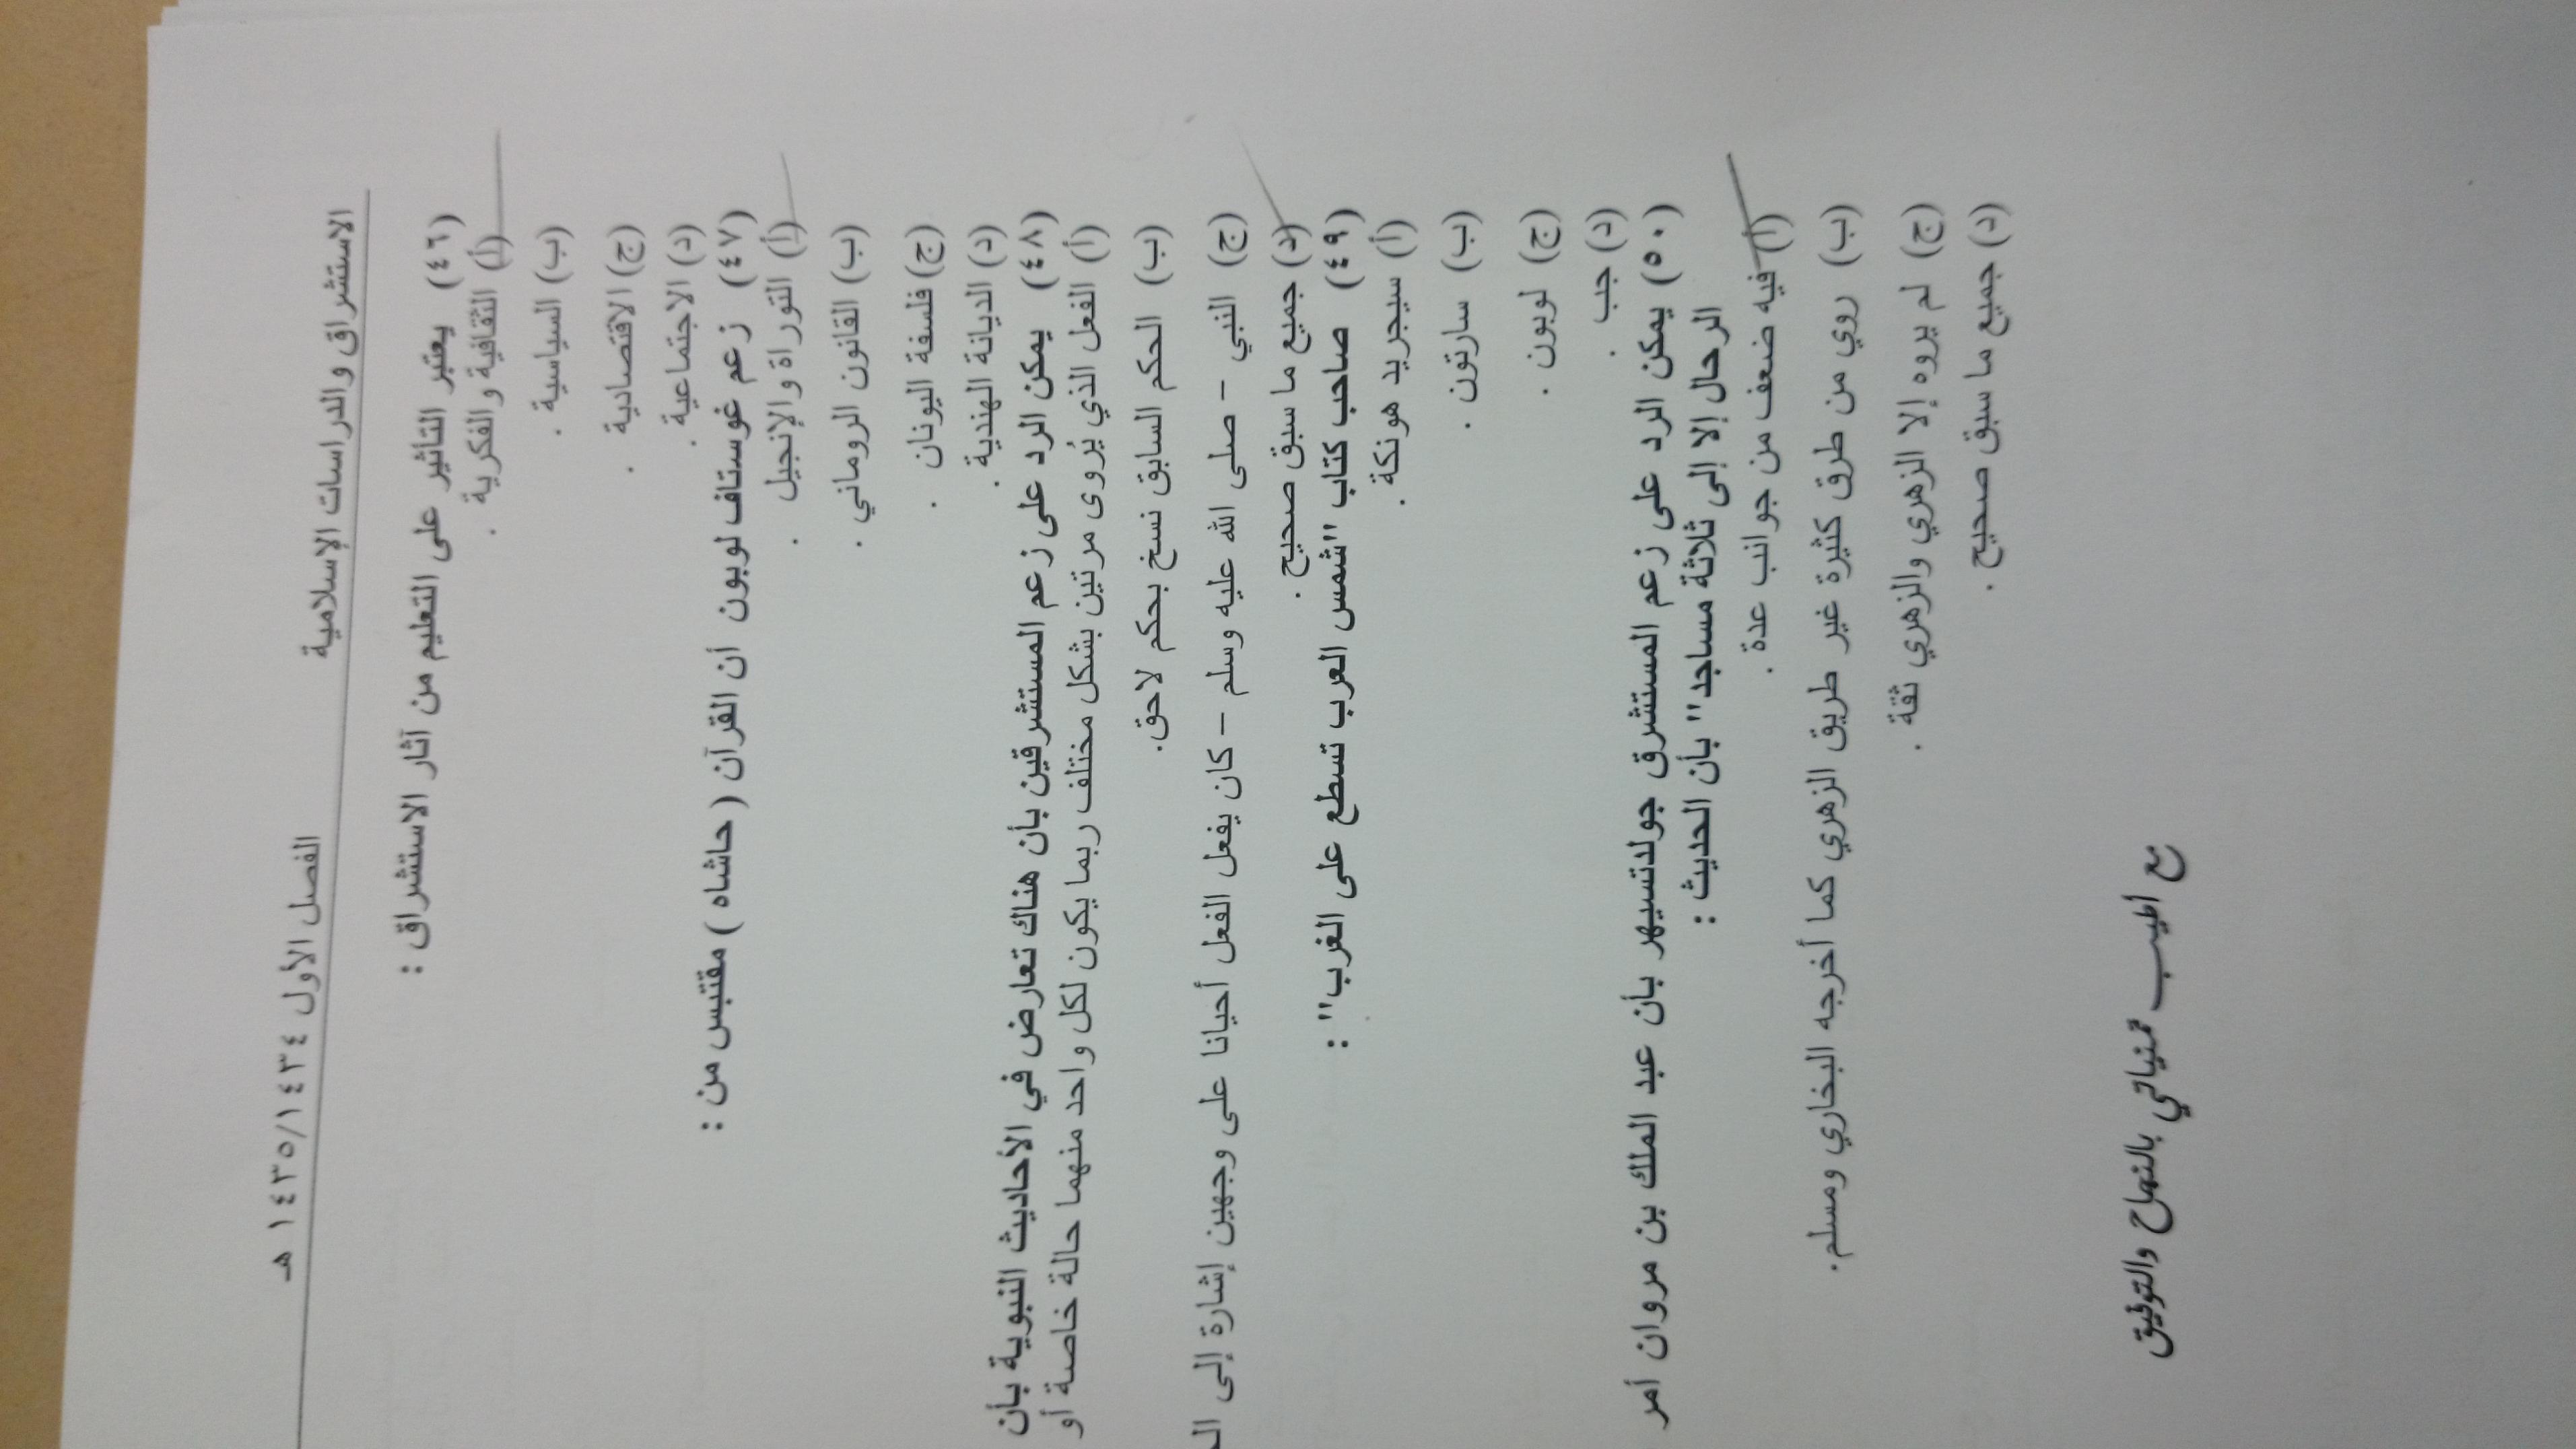 الاستشراق والدراسات الإسلامية الفصل الأول ١٤٣٥/١٤٣٤ هـ
(٤٦) يعتبر التأثير على التعليم من آثار الاستشراق :
(أ) الثقافية والفكرية .
(ب) السياسية .
(ج) الاقتصادية .
(د) الاجتماعية .
(٤٧) زعم غوستاف لوبون أن القرآن (حاشاه) مقتبس من :
(أ) التوراة والإنجيل .
(ب) القانون الروماني .
(ج) فلسفة اليونان .
(د) الديانة الهندية .
(٤٨) يمكن الرد على زعم المستشرقين بأن هناك تعارض في الأحاديث النبوية بأن
(أ) الفعل الذي يُروى مرتين بشكل مختلف ربما يكون لكل واحد منهما حالة خاصة أو
(ب) الحكم السابق نسخ بحكم لاحق.
(ج) النبي – صلى الله عليه وسلم – كان يفعل الفعل أحيانا على وجهين إشارة إلى
(د) جميع ما سبق صحيح .
(٤٩) صاحب كتاب "شمس العرب تسطع على الغرب" :
(أ) سيجريد هونكة .
(ب) سارتون .
(ج) لوبون .
(د) جب .
(٥٠) يمكن الرد على زعم المستشرق جولدتسيهر بأن عبد الملك بن مروان أمر
الرحال إلا إلى ثلاثة مساجد" بأن الحديث :
(أ) فيه ضعف من جوانب عدة .
(ب) روي من طرق كثيرة غير طريق الزهري كما أخرجه البخاري ومسلم.
(ج) لم يروه إلا الزهري والزهري ثقة .
(د) جميع ما سبق صحيح .
مع أطيب تمنياتي بالنجاح والتوفيق